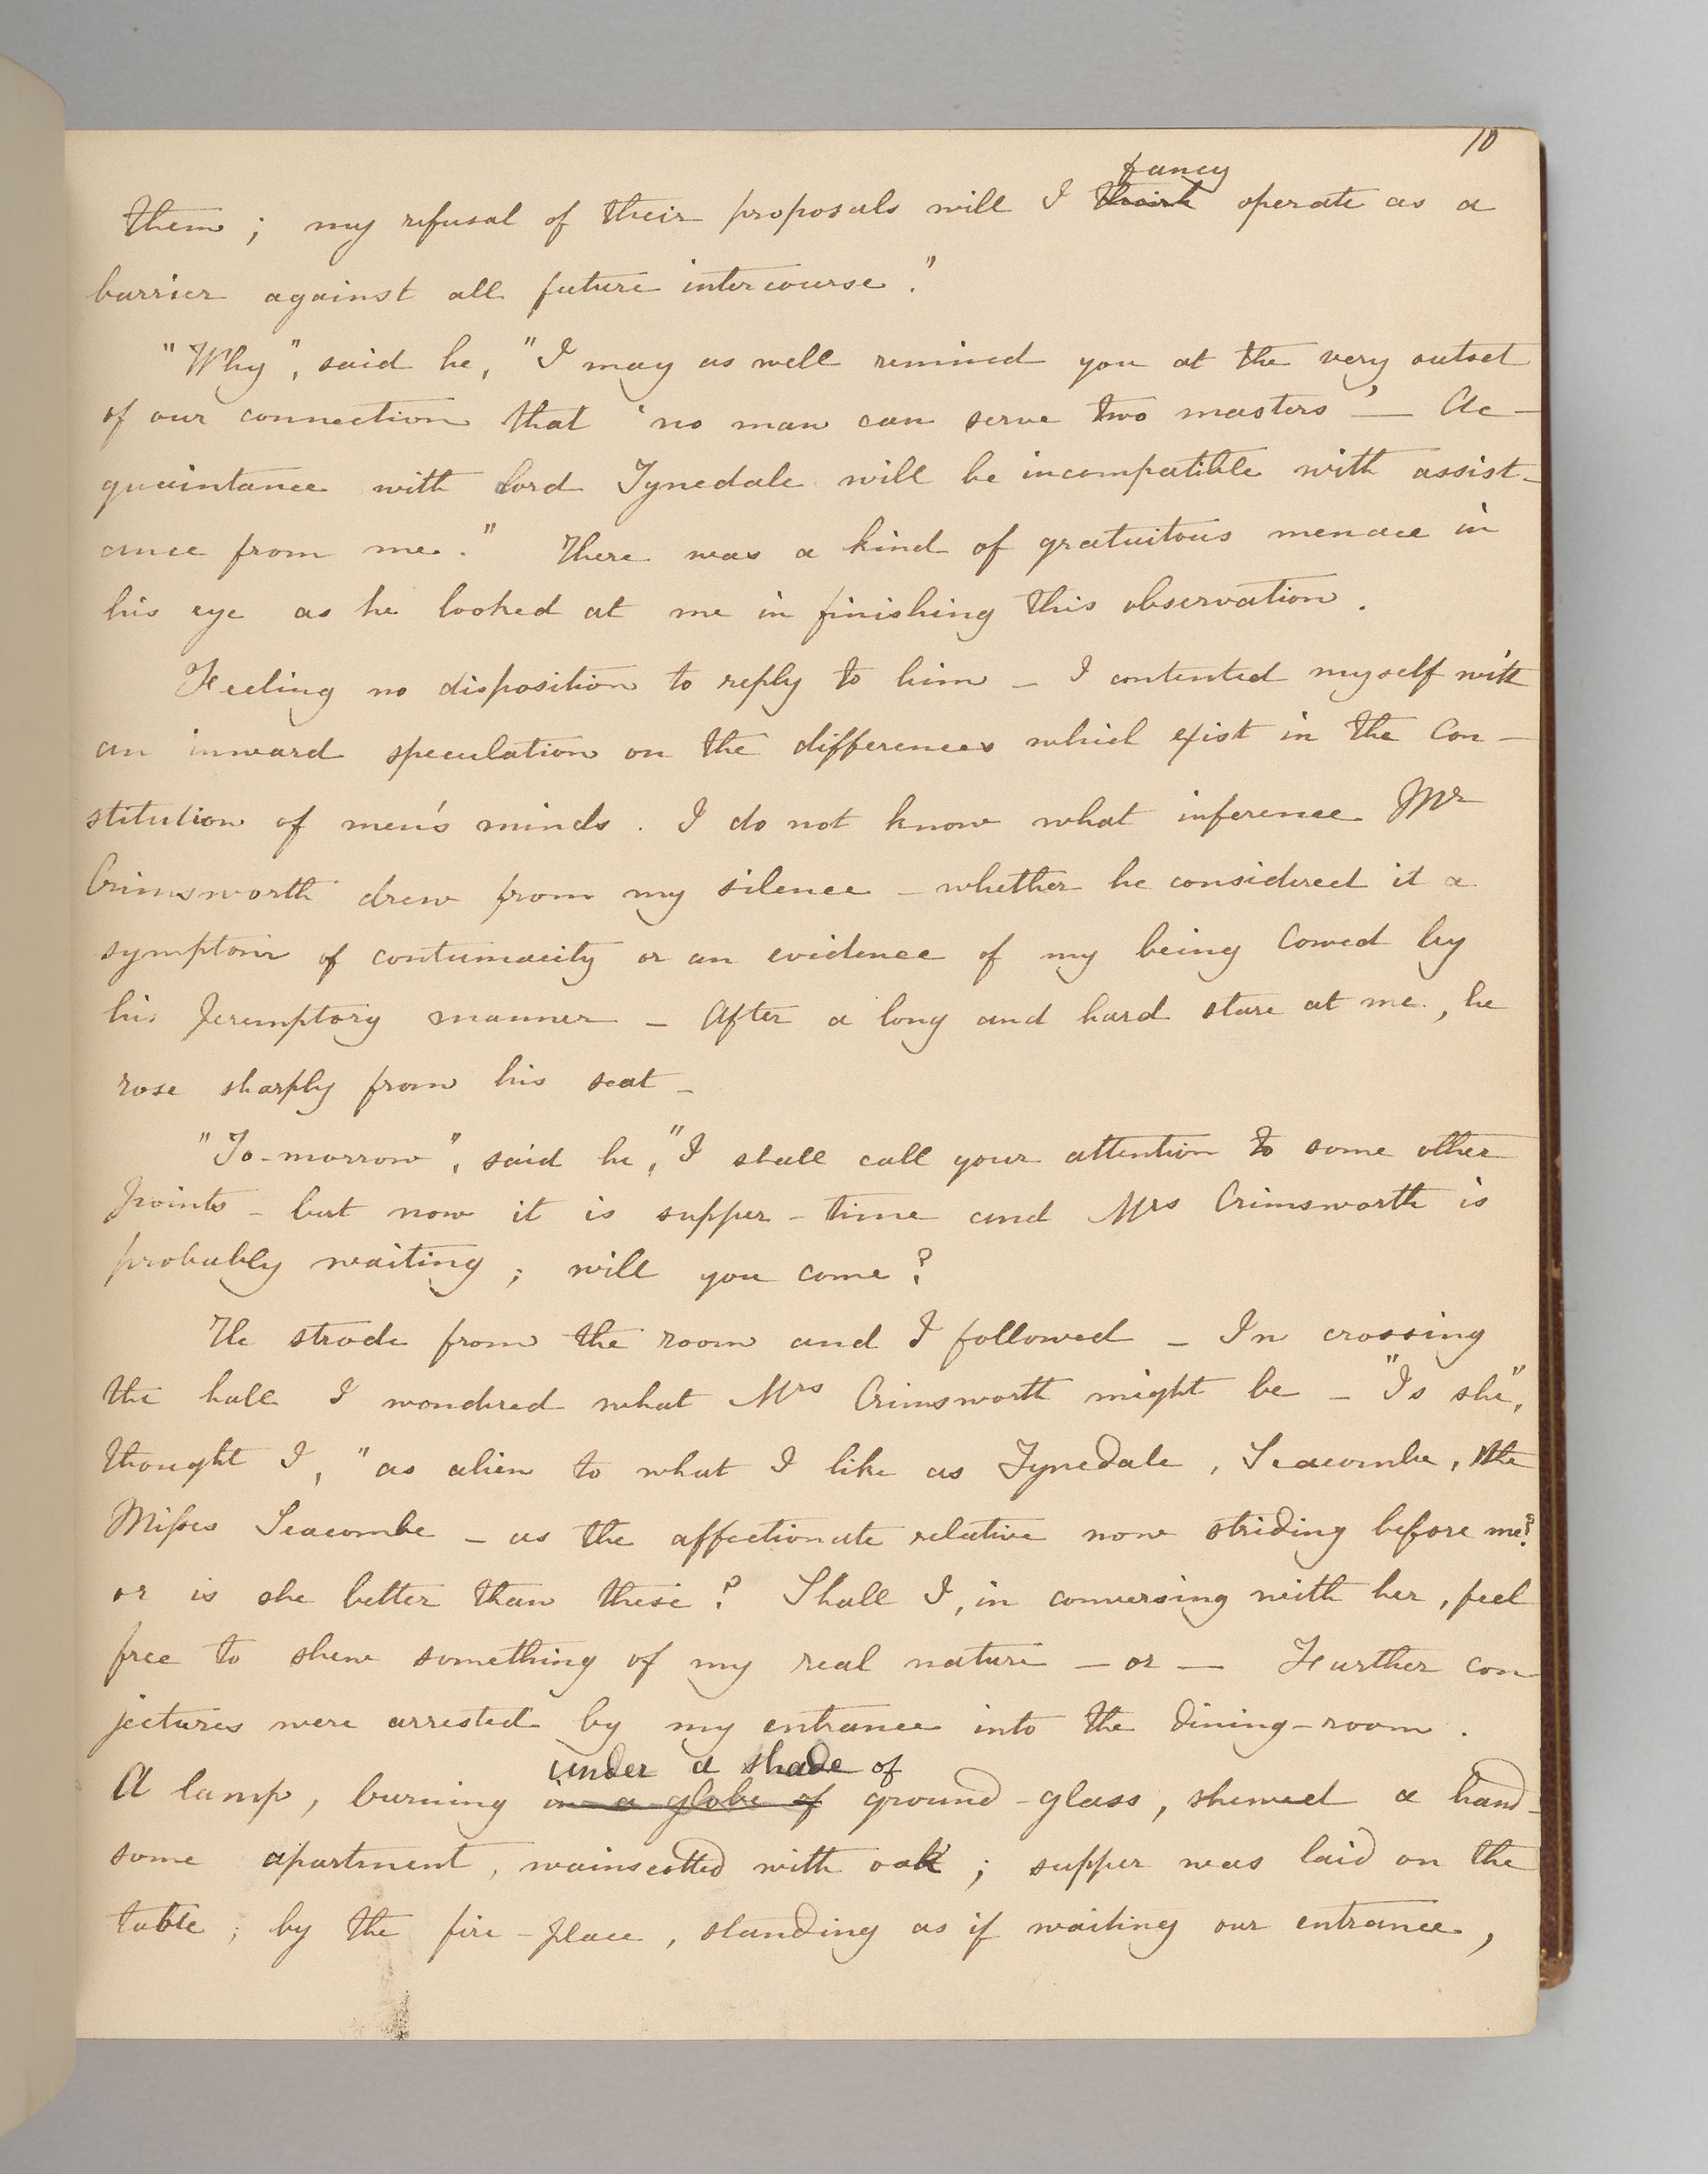 10
fancy
them ; my refusal of their proposals will I think operate as a
barrier against all future intercourse."
"Why", said he, "I may as well remind you at the very outset
of our connection that 'no man can serve two masters' — Ac-
quaintance with Lord Tynedale will be incompatible with assist-
ance from me." There was a kind of gratuitous menace in
his eye as he looked at me in finishing this observation.
Feeling no disposition to reply to him — I contented myself with
an inward speculation on the differences which exist in the Con-
stitution of men's minds. I do not know what inference Mr
Crimsworth drew from my silence — whether he considered it a
symptom of contumacity or an evidence of my being Cowed by
his Peremptory manner — After a long and hard stare at me, he
rose sharply from his seat —
"To-morrow", said he, "I shall call your attention to some other
points — but now it is supper-time and Mrs Crimsworth is
probably waiting ; will you come ?
He strode from the room and I followed — In crossing
the hall I wondered what Mrs Crimsworth might be — "Is she",
thought I, "as alien to what I like as Tynedale, Seacombe, the
Misses Seacombe — as the affectionate relative now striding before me?
or is she better than these ? Shall I, in conversing with her, feel
free to shew something of my real nature — or — Further con
jectures were arrested by my entrance into the dining-room.
under a shade of
A lamp, burning in a globe of ground-glass, shewed a hand-
some apartment, wainscotted with oak ; supper was laid on the
table ; by the fire-place, standing as if waiting our entrance,